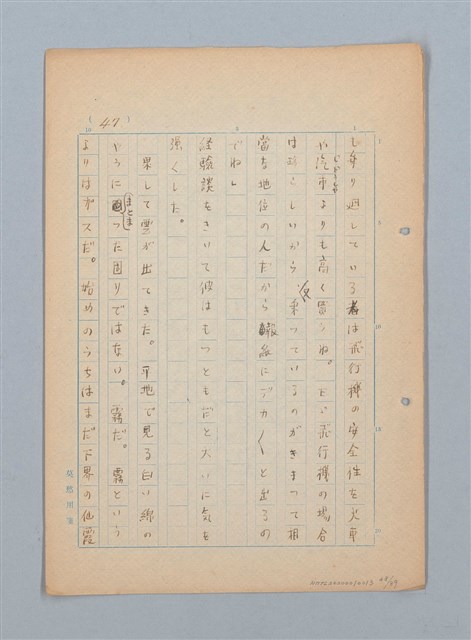 (47)
も乗り廻している者は飛行機の安全性を火車
や汽車よりも高く買うね。だが飛行機の場合
は珍らしいから 乗っているのがきまって相
当な地位の人だから新聞にデカ〱と出るの
でね」
経験談をきいて彼はもつともだと大いに気を
強くした。
果して雲が出てきた。平地で見る白い綿の
やうに固まつた固りではない。霧だ。霧という
よりはガスだ。始めのうちはまだ下界の仙霞